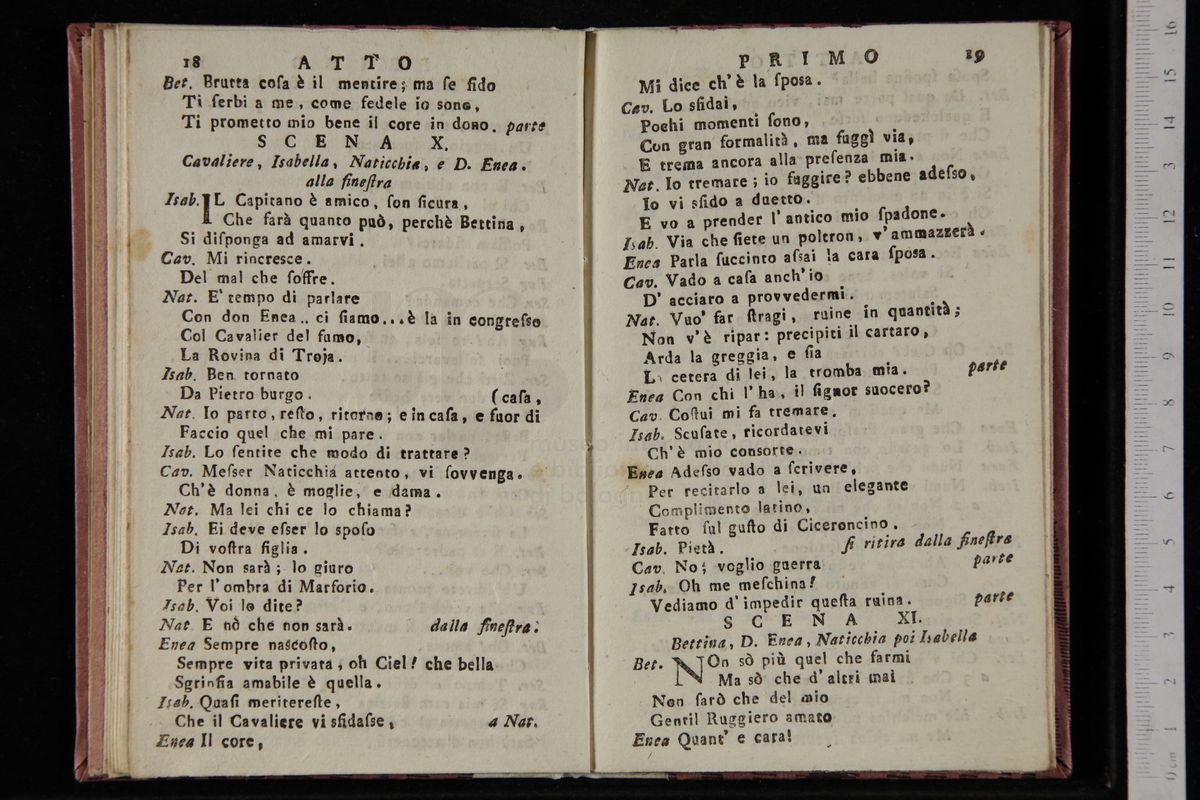 18 ATTO
Bet. Brutta cosa è il mentire; ma se fido
Ti serbi a me, come fedele io sono,
Ti prometto mio bene il core in dono. parte
SCENA X.
Cavaliere, Isabella, Naticchia, e D. Enea.
alla finestra
Isab. IL Capitano è amico, son sicura,
Che farà quanto può, perchè Bettina,
Si disponga ad amarvi.
Cav. Mi rincresce.
Del mal che soffre.
Nat. E' tempo di parlare
Con don Enea.. ci siamo...è la in congresso
Col Cavalier del fumo,
La Rovina di Troja.
Isab. Ben tornato
Da Pietro burgo. (casa,
Nat. Io parto, resto, ritorno; e in casa, e fuor di
Faccio quel che mi pare.
Isab. Lo sentite che modo di trattare?
Cav. Messer Naticchia attento, vi sovvenga.
Ch'è donna, è moglie, e dama.
Nat. Ma lei chi ce lo chiama?
Isab. Ei deve esser lo sposo
Di vostra figlia.
Nat. Non sarà; lo giuro
Per l'ombra di Marforio.
Isab. Voi lo dite?
Nat. E nò che non sarà. dalla finestra.
Enea Sempre nascosto,
Sempre vita privata, oh Ciel! che bella
Sgrinfia amabile è quella.
Isab. Quasi meritereste,
Che il Cavaliere vi sfidasse, a Nat.
Enea Il core,
PRIMO 19
Mi dice ch'è la sposa.
Cav. Lo sfidai,
Pochi momenti sono,
Con gran formalità, ma fuggì via,
E trema ancora alla presenza mia.
Nat. Io tremare; io fuggire? ebbene adesso,
Io vi sfido a duetto.
E vo a prender l'antico mio spadone.
Isab. Via che siete un poltron, v'ammazzerà.
Enea Parla succinto assai la cara sposa.
Cav. Vado a casa anch'io
D'acciaro a provvedermi.
Nat. Vuo' far stragi, ruine in quantità;
Non v'è ripar: precipiti il cartaro,
Arda la greggia, e sia
La cetera di lei, la tromba mia. parte
Enea Con chi l'ha, il signor suocero?
Cav. Costui mi fa tremare.
Isab. Scusate, ricordatevi
Ch'è mio consorte.
Enea Adesso vado a scrivere,
Per recitarlo a lei, un elegante
Complimento latino,
Fatto sul gusto di Ciceroncino.
Isab. Pietà. si ritira dalla finestra
Cav. No; voglio guerra parte
Isab. Oh me meschina!
Vediamo d'impedir questa ruina. parte
SCENA XI.
Bettina, D. Enea, Naticchia poi Isabella
Bet. NOn sò più quel che farmi
Ma sò che d'altri mai
Non sarò che del mio
Gentil Ruggiero amato
Enea Quant' e cara!